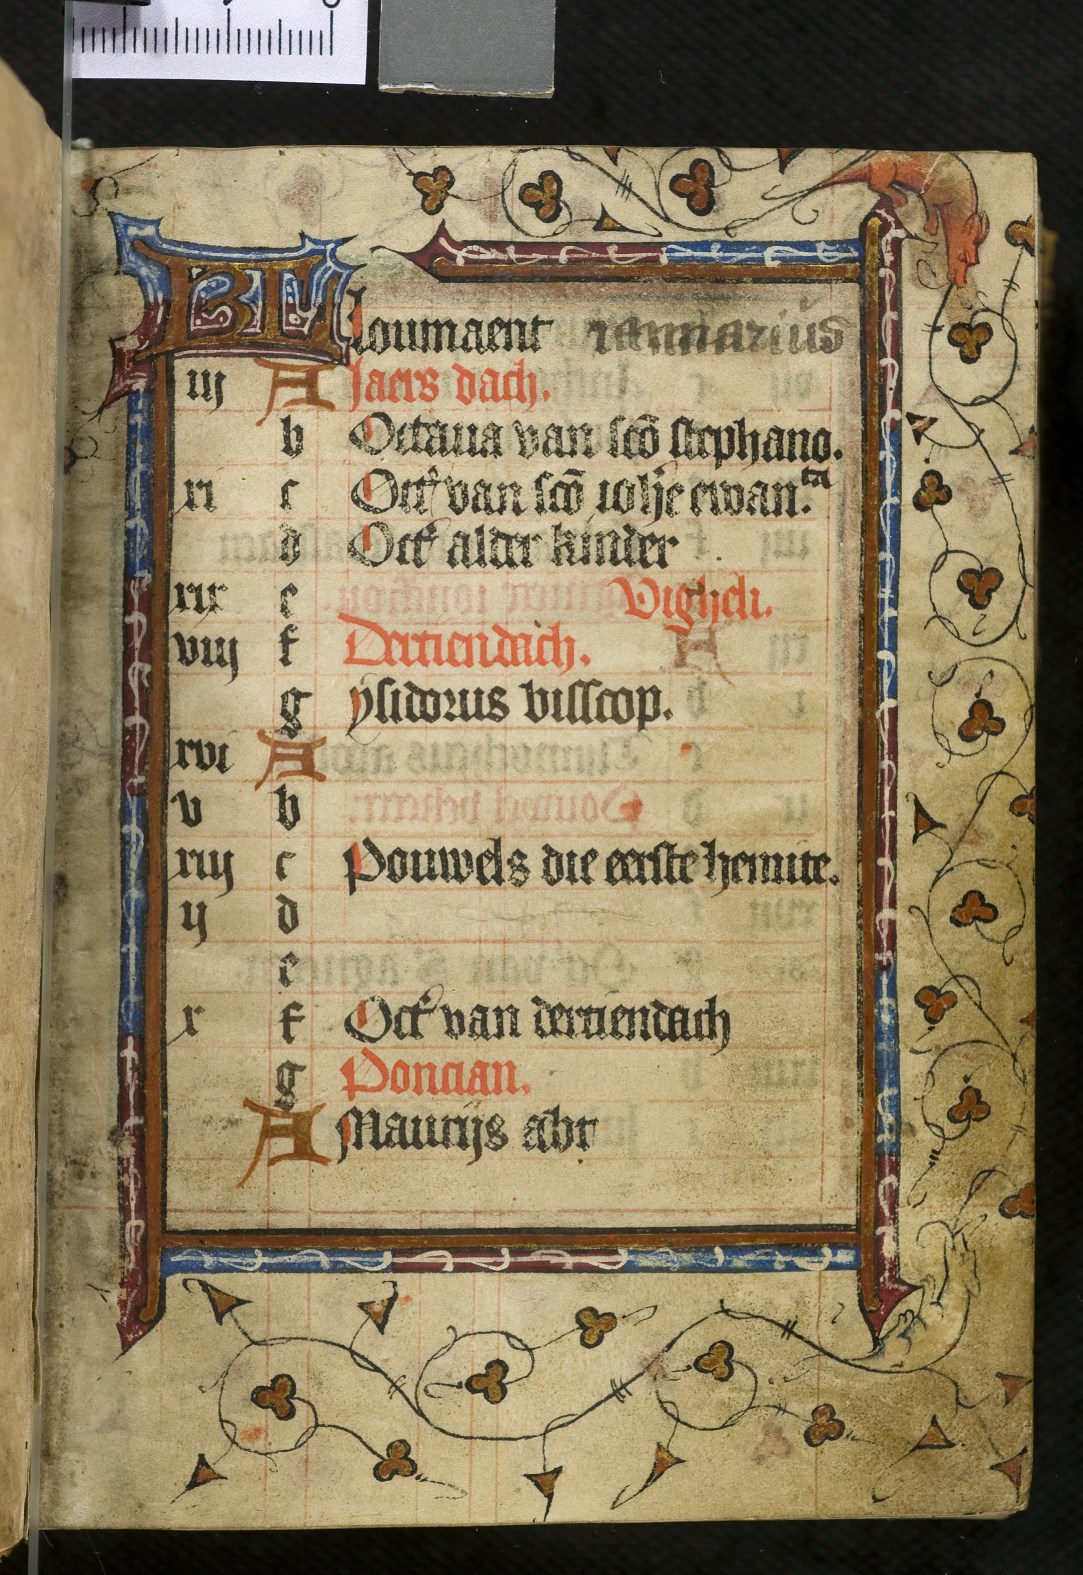 KL Loumaent ianuarius
iij A Jaers dach.
b Octaua van sco͞ stephano.
xi c Oct' van sco͞ iohe͞ ewan.ta
d Oct' alder kinder
xix e Vigheli.
viij f Dertiendach.
g ysidorus bisscop.
xvi A
v b
xiij c Pouwels die eerste hemite.
ij d
e
x f Oct' van dertiendach
g Poncian.
A Maurijs abt